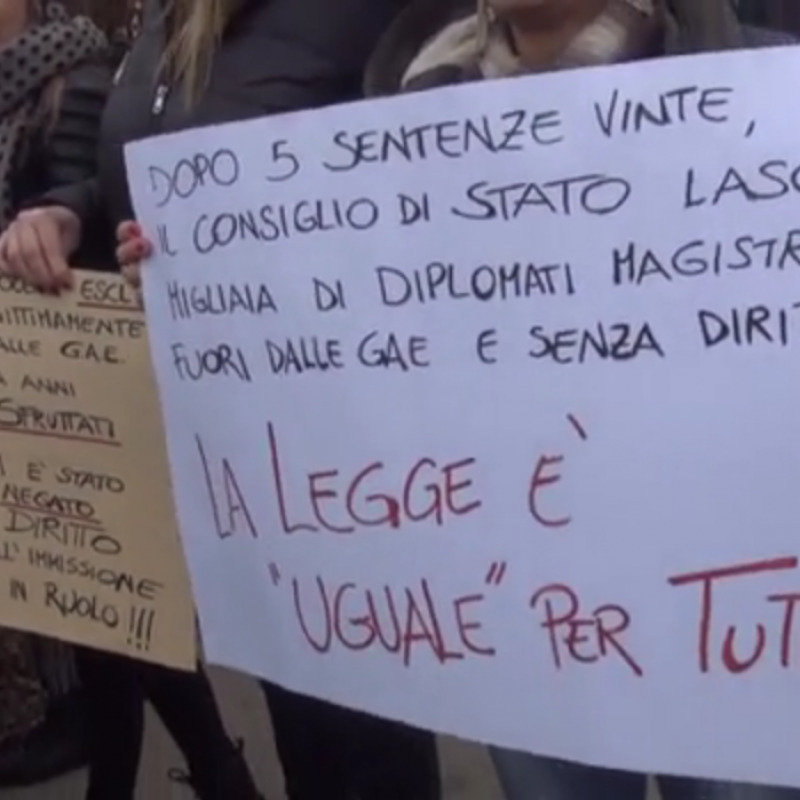 ESCL
ITTIMAMENTE
ALLE GAE
ANNI
SFRUTTATI
E' STATO
NEGATO
DIRITTO
L'IMMISSIONE
IN RUOLO!!!
DOPO 5 SENTENZE VINTE,
IL CONSIGLIO DI STATO LASC
MIGLIAIA DI DIPLOMATI MAGISTR
FUORI DALLE GAE E SENZA DIRIT
LA LEGGE E'
"UGUALE" PER TUT